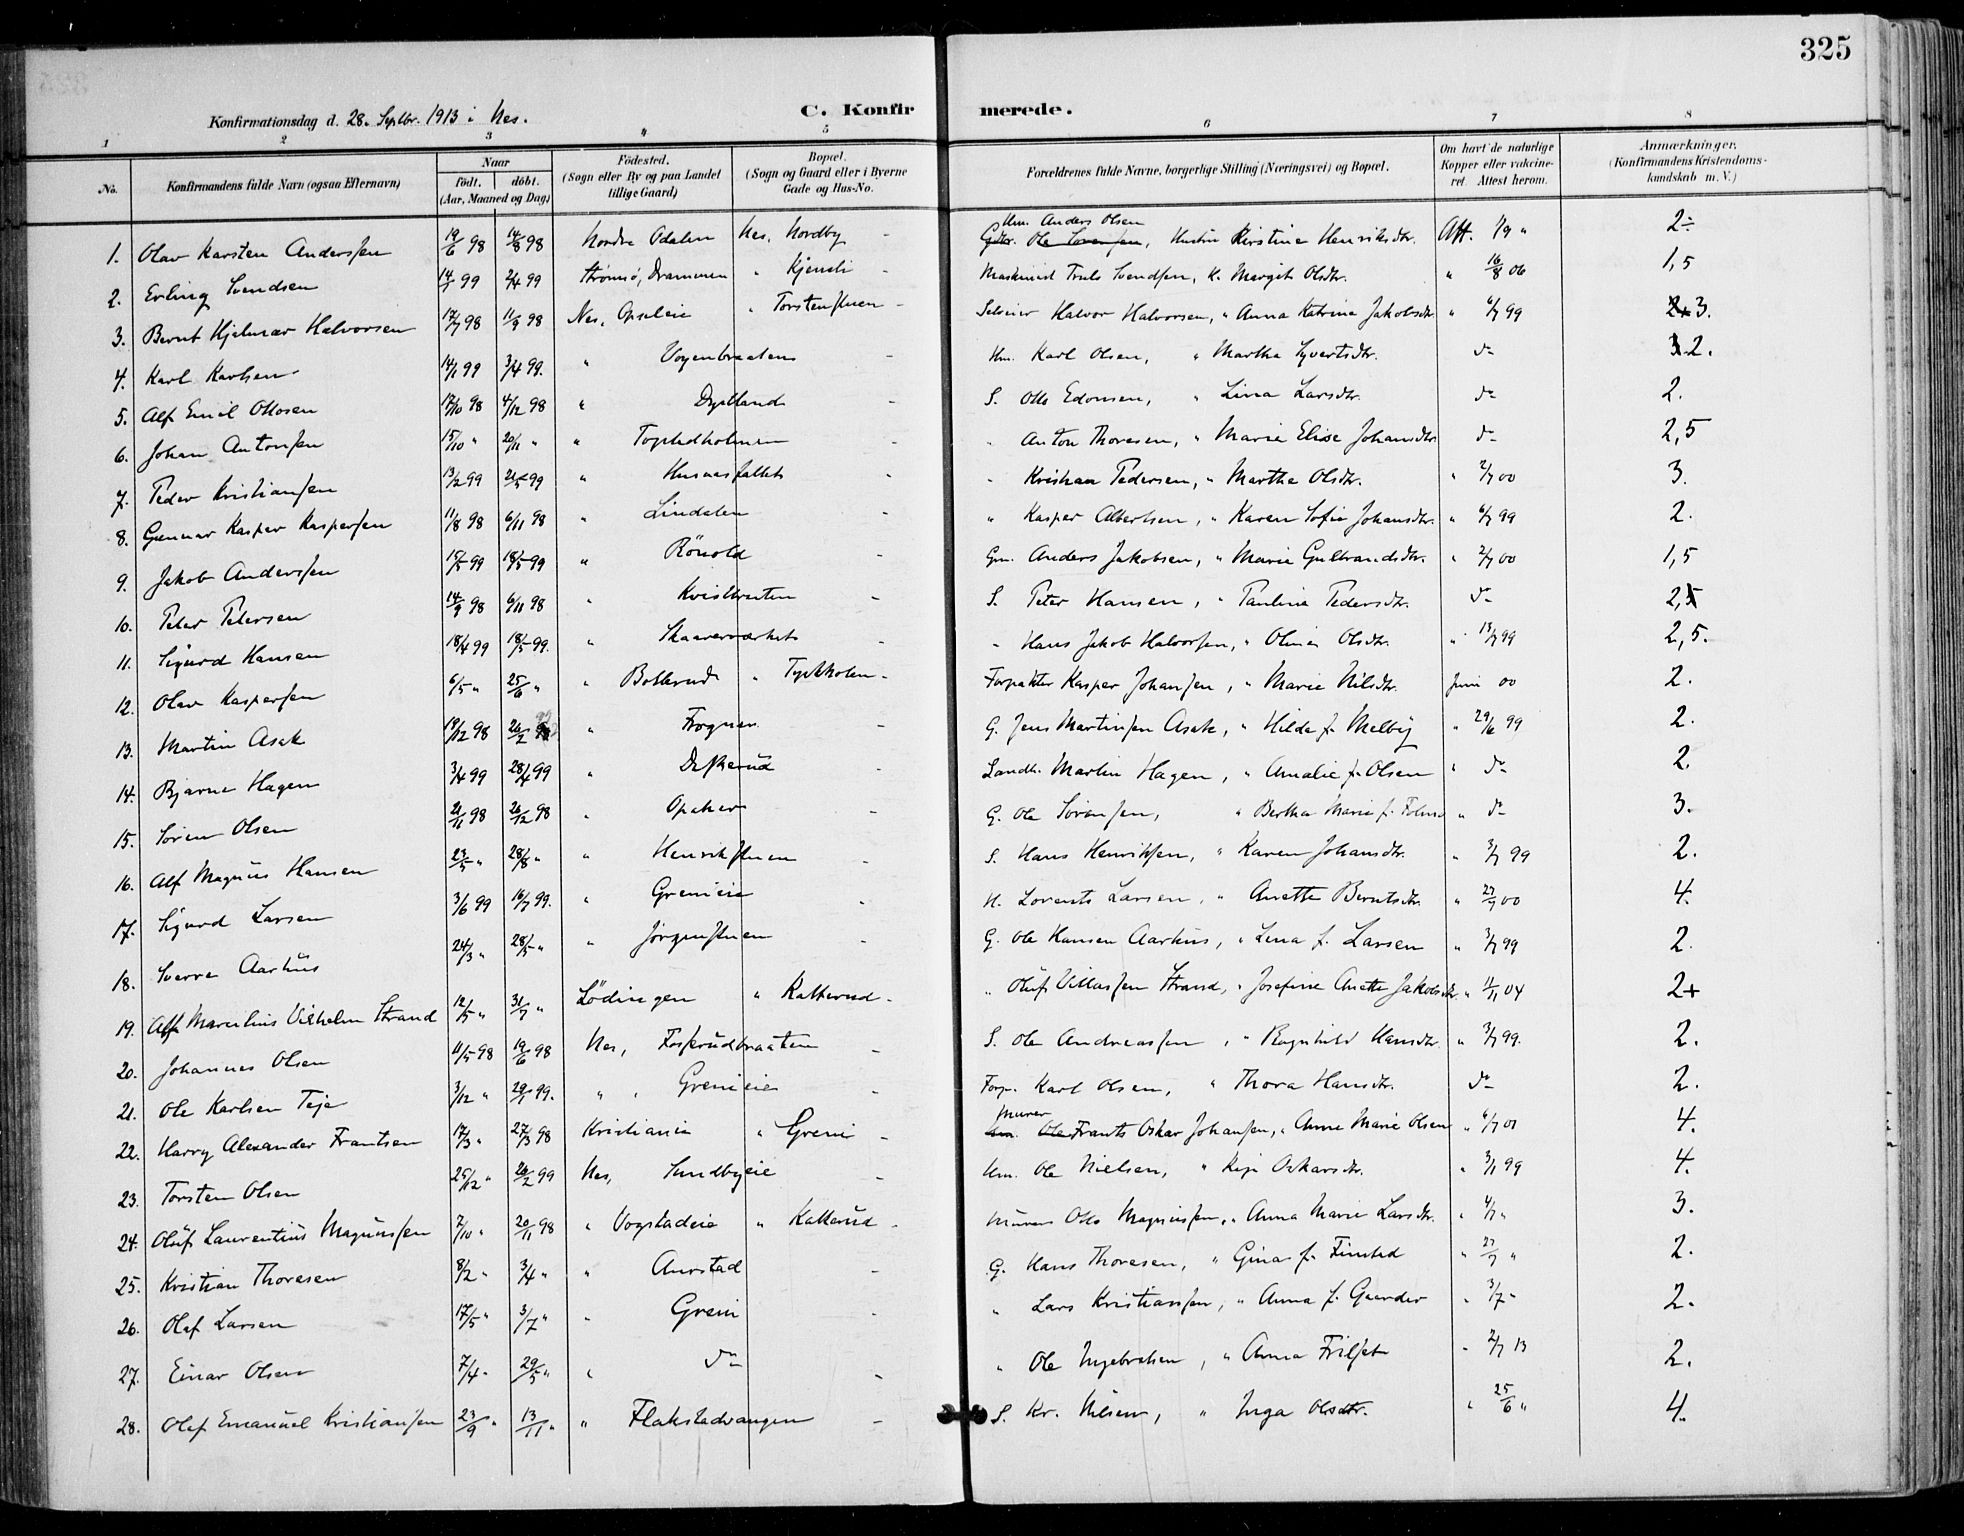 325
Konfirmationsdag d. 28. Septbr. 1913 i Nes.
C. Konfirmerede.
1 2 3 4 5 6 7 8
No. Konfirmandens fulde Navn (ogsaa Efternavn) Naar født. døbt. (Aar, Maaned og Dag) Fødested. (Sogn eller By og paa Landet tillige Gaard) Bopæl. (Sogn og Gaard eller i Byerne Gade og Hus-No. Forældrenes fulde Navne, borgerlige Stilling (Næringsvei) og Bopæl. Om havt de naturlige Kopper eller vakcineret. Attest herom. Anmærkninger. (Konfirmandens Kristendomskundskab m. V.)
1. Olav Karsten Anderssen 19/6 98 14/8 98 Nordre Odalen Nes, Nordby - Hm. Anders Olsen Gdbr. Ole Sørensen, Hustru Kirstine Henriksdtr. Att. 1/9 " 2÷
2. Erling Svendsen 14/1 99 2/4 99 Strømsø, Drammen " Kjensli - Maskinist Truls Svendsen, H. Margit Olsdtr. " 16/8 06 1,5
3. Bernt Hjelmar Halvorsen 17/7 98 11/9 98 Nes, Opakeie " Torstenstuen - Selveier Halvor Halvorsen, " Anna Katrine Jakobsdtr. " 6/7 99 2+ 3.
4. Karl Karlsen 14/1 99 3/4 99. " Vogenbraaten - Hm. Karl Olsen, " Martha Syvertsdtr. do 3 2.
5. Alf Emil Ottosen 17/10 98 4/12 98 " - S. Otto Edonsen, " Lina Larsdtr. do 2.
6. Johan Antonsen 15/10 " 20/11 " " - " Anton Thoresen, " Marie Elise Johansdtr. do 2,5
7. Peder Kristiansen 13/2 99 21/5 99 " Husaasfaltet - " Kristian Pedersen, " Martha Olsdtr. " 2/7 00 3.
8. Gunnar Kasper Kaspersen 11/8 98 6/11 98 " Lindalen - " Kasper Albertsen, " Karen Sofie Johansdtr. " 6/7 99 2.
9. Jakob Anderssen 15/3 99 18/5 99 " Rönold - Gm. Anders Jakobsen, " Marie Gulbrandsdtr. " 2/7 00 1,5
10. Peter Petersen 14/9 98 6/11 98 " - S. Peter Hansen, " Pauline Pedersdtr. do 2,5
11. Sigurd Hansen 18/4 99 18/5 99. " Skaaerværket - " Hans Jakob Halvorsen, " Oline Olsdtr. " 13/7 99 2,5.
12. Olav Kaspersen 6/5 " 25/6 " " Bollerud " - Forpakter Kasper Johansen, " Marie Nilsdtr. Juni 00 2.
13. Martin Asak 19/12 98 26/2 " Frogner - G. Jens Martinsen Asak, " Hilda f. Melby " 29/6 99 2.
14. Bjarne Hagen 3/4 99 28/4 99 " Diskerud - Landh. Martin Hagen, " Amalie f. Olsen " do 2.
15. Søren Olsen 21/11 98 26/12 98 " Opaker - G. Ole Sørensen, " Bertha Marie f. " do 3.
16. Alf Magnus Hansen 23/5 " 28/8 " " Henrikstuen - S. Hans Henriksen, " Karen Johansdtr. " 3/7 99 2.
17. Sigurd Larsen 3/6 99 16/7 99. " Grenieie - H. Lorents Larsen, " Anette Berntsdtr. " 27/7 00 4.
18. Sverre Aarhus 24/3 " 28/5 " " Jørgenstuen - G. Ole Hansen Aarhus, " Lena f. Larsen " 3/7 99 2.
19. Alf Marelius Vilhelm Strand 12/5 " 31/7 " Lödingen " Katterud - " Oluf Villassen Strand, " Josefine Anette Jakobsdtr. " 1/11 04 2+
20. Johannes Olsen 11/5 98 19/6 98 Nes, Fosserudbraaten - S. Ole Andreassen, " Ragnhild Hansdtr. " 3/7 99. 2.
21. Ole Karlsen Teje 3/12 " 29/1 99. " " Grenieie - Forp. Karl Olsen, " Thora Hansdtr. do 2.
22. Harry Alexander Frantsen 17/3 " 27/3 98 Kristiania " Greni - Murer Hm. Ole Frants Oskar Johansen, " Anne Marie Olsen " 4/7 01 4.
23. Torsten Olsen 25/12 " 26/2 99 Nes, Sundbyeie - Hm. Ole Nielsen, " Oskarsdtr. " 3/7 99 4.
24. Oluf Laurentius Magnussen 7/10 " 20/11 98 " Vogstadeie " Katterud - Murer Otto Magnussen, " Anna Marie Larsdtr. " 4/7 " 3.
25. Kristian Thoresen 8/2 " 3/4 " " Aurstad - G. Hans Thoresen, " Gina f. Finstad " 27/7 " 2.
26. Olaf Larsen 17/5 " 3/7 " " Greni - " Lars Kristiansen, " Anna f. Gaarder " 3/7 " 2.
27. Einar Olsen 7/4 " 29/5 " " do - " Ole Ingebretsen, " Anna Frilset " 2/7 13 2.
28. Olaf Emanuel Kristiansen 23/9 " 13/11 " " Flakstadvangen - S. Kr. Nilsen, " Inga Olsdtr. " 25/6 " 4.